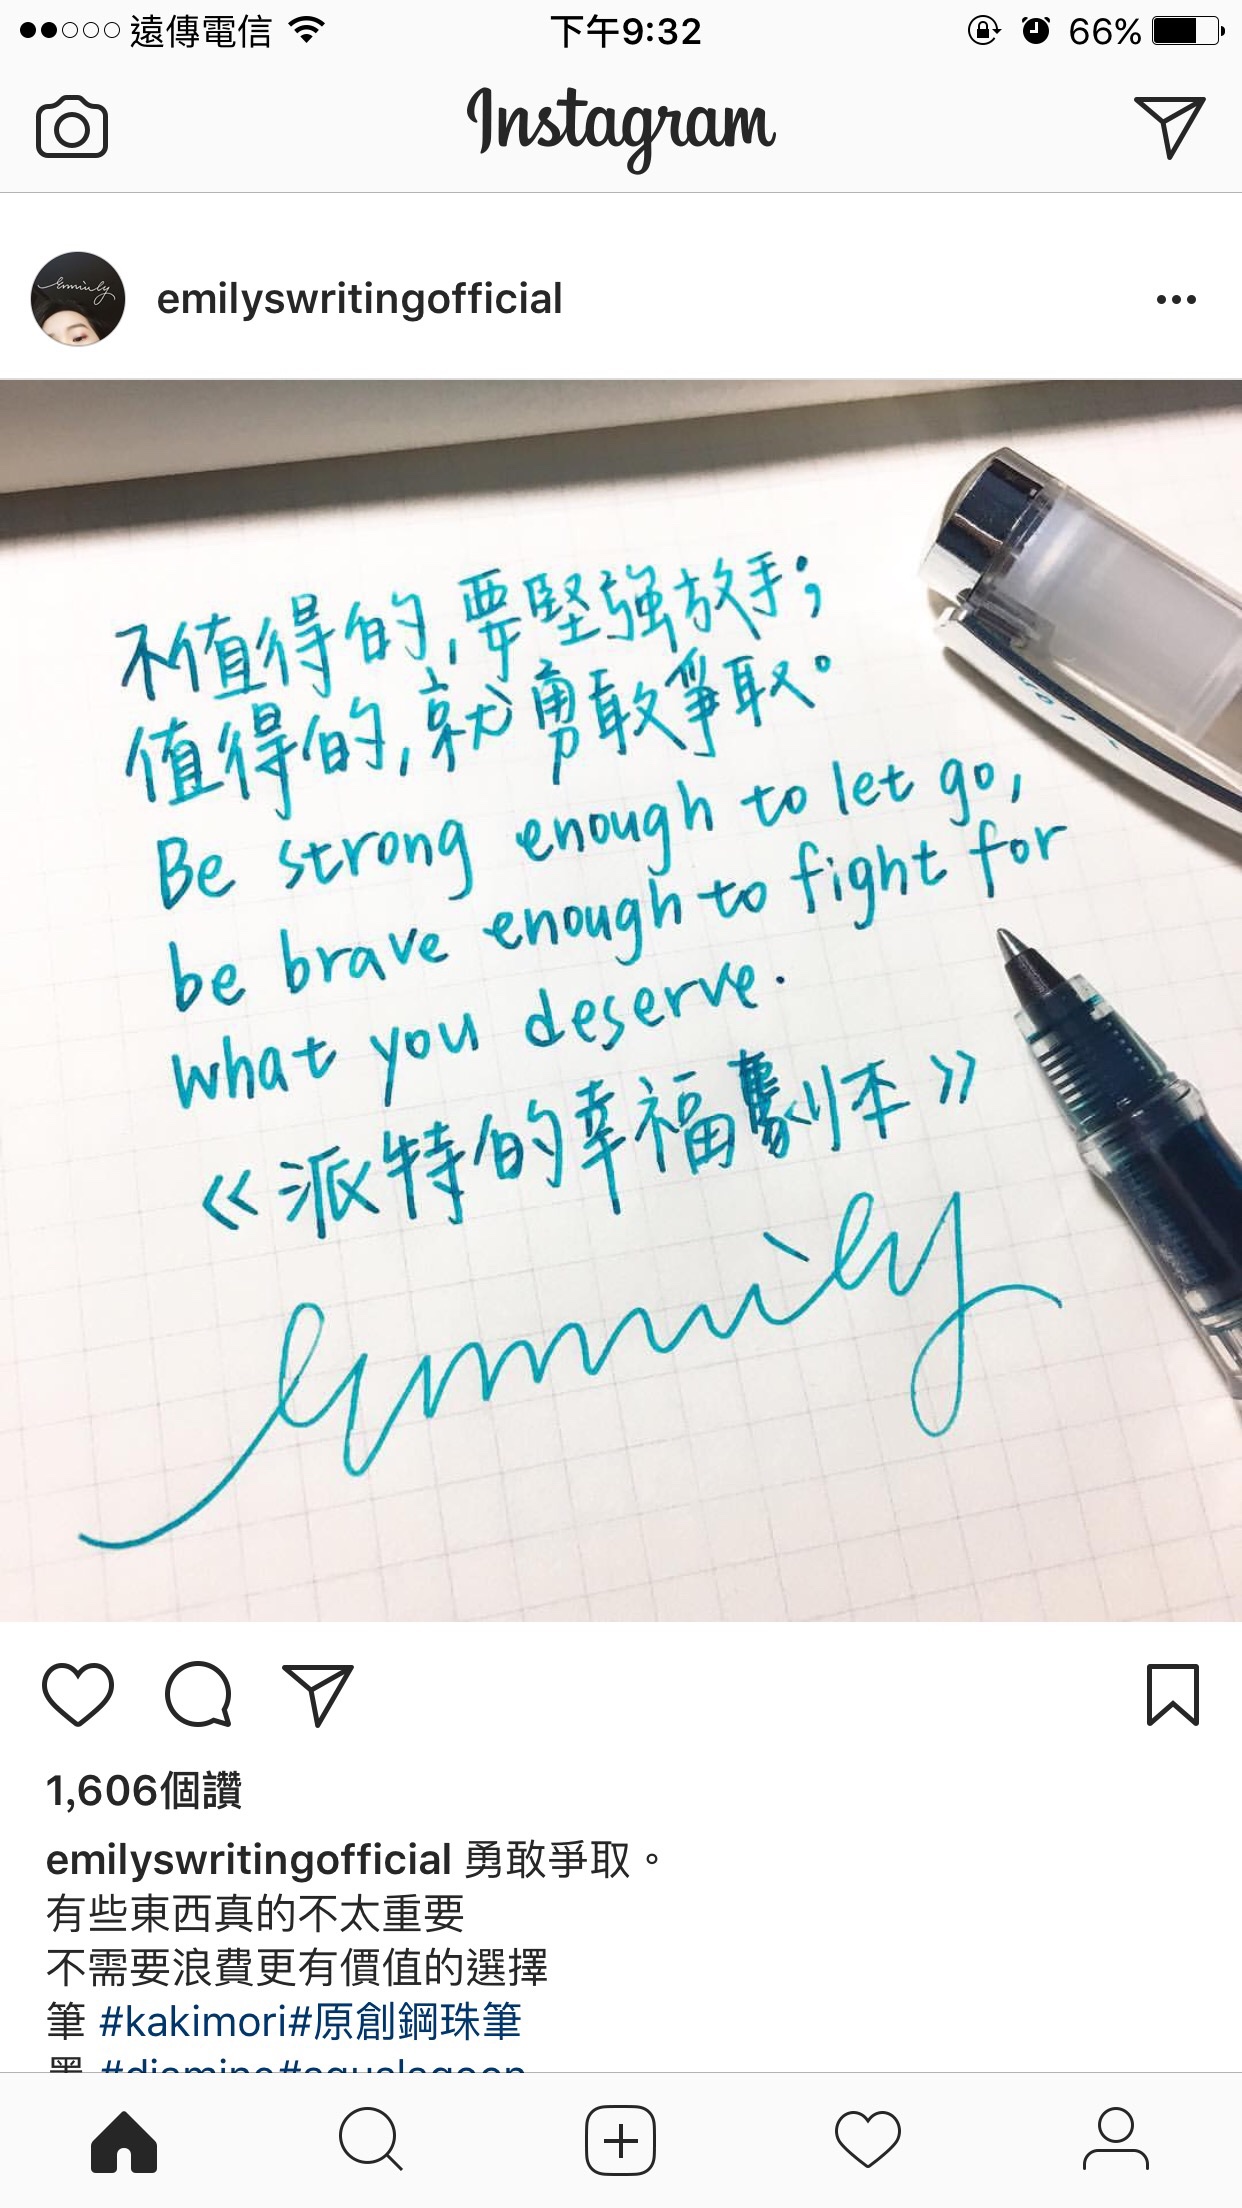 遠傳電信
下午9:32
66%
Instagram
emilyswritingofficial
不值得的,要堅強放手;
值得的,就勇敢爭取。
Be strong enough to let go,
be brave enough to fight for
what you deserve.
《派特的幸福劇本》
Emmily
1,606個讚
emilyswritingofficial 勇敢爭取。
有些東西真的不太重要
不需要浪費更有價值的選擇
筆 #kakimori#原創鋼珠筆
墨 #diamine#aqualagoon